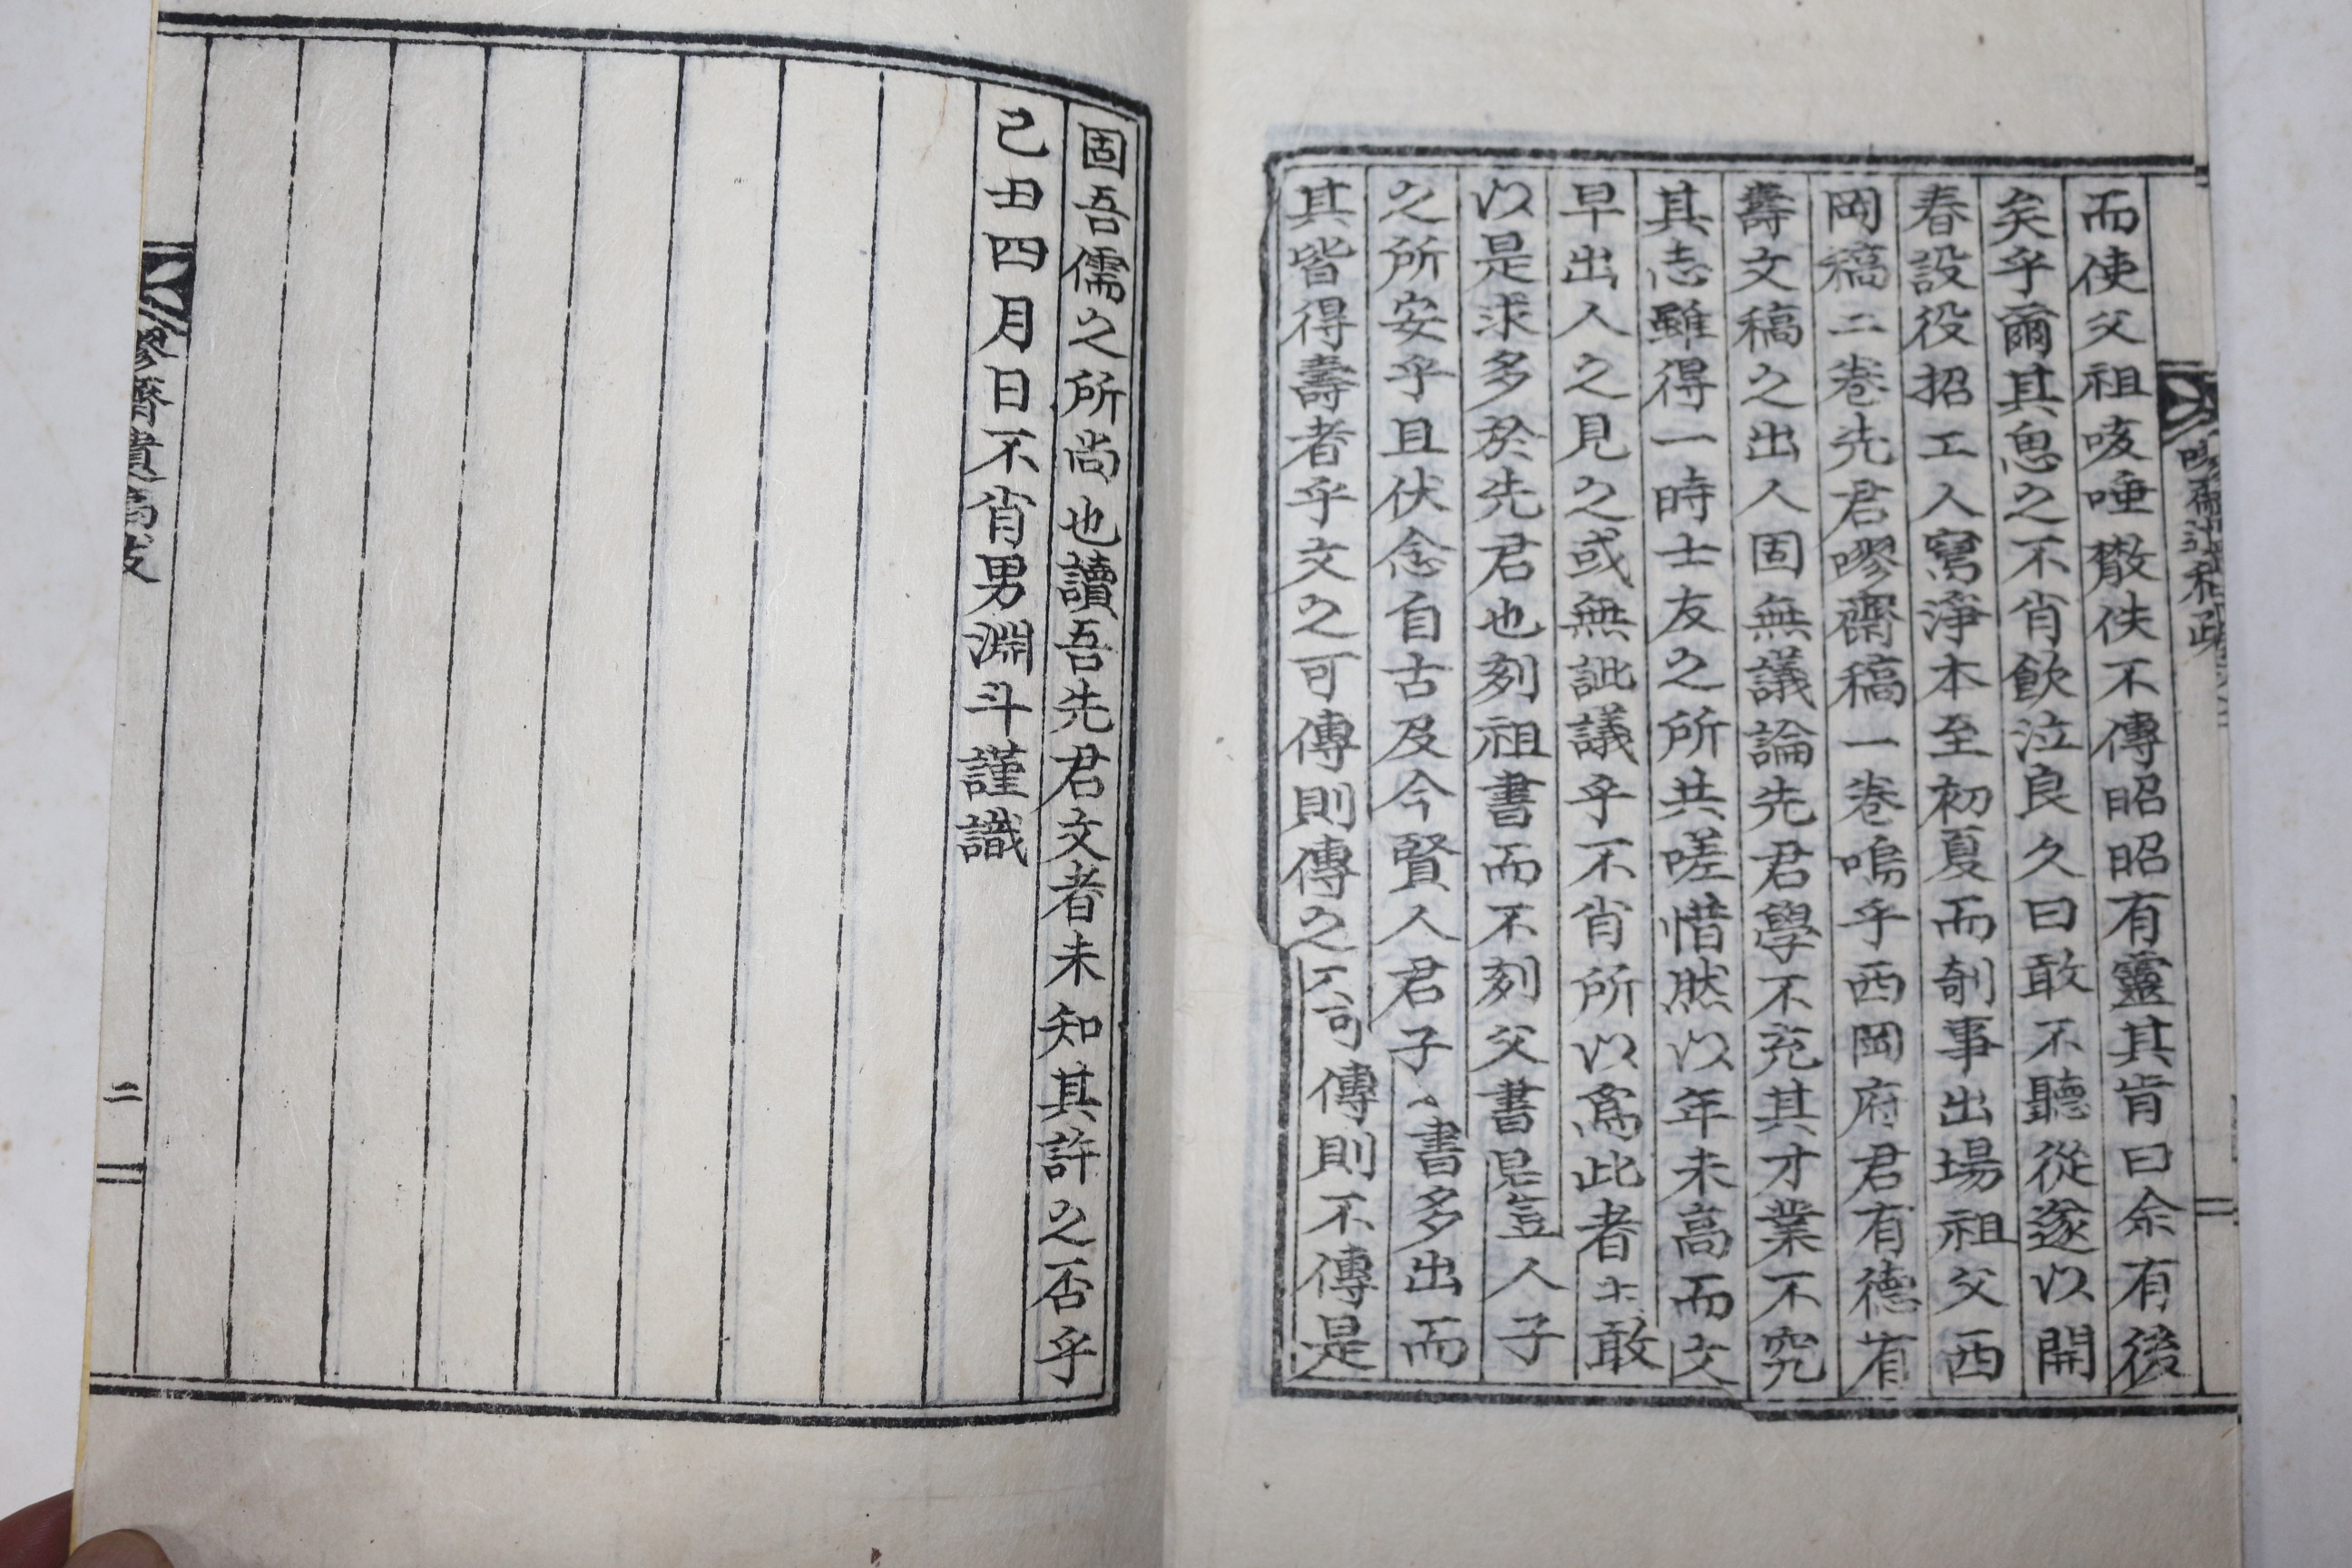 而使父祖咳唾散佚不傳昭昭有靈其肯曰余有後
矣乎爾其思之不肖飮泣良久曰敢不聽從遂以開
春設役招工人寫淨本至初夏而剞事出場祖父西
岡稿二卷先君嘐齋稿一卷嗚乎西岡府君有德有
壽文稿之出人固無議論先君學不充其才業不究
其志雖得一時士友之所共嗟惜然以年未高而文
早出人之見之或無訿議乎不肖所以爲此者士敢
以是求多於先君也刻祖書而不刻父書是豈人子
之所安乎且伏念自古及今賢人君子之書多出而
其皆得壽者乎文之可傳則傳之不可傳則不傳是
固吾儒之所尚也讀吾先君文者未知其許之否乎
己丑四月日不肖男淵斗謹識
嘐齋遺稿跋
二